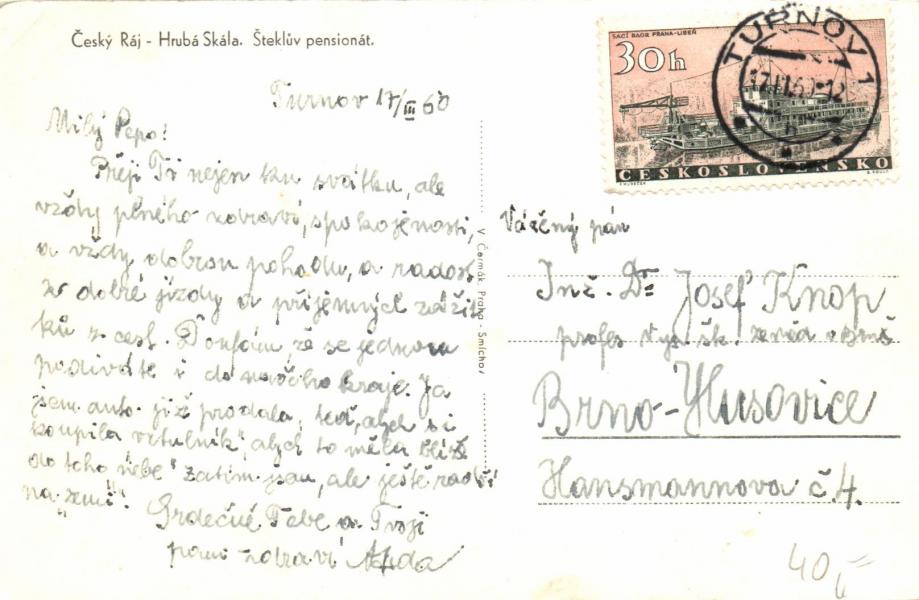 Český Ráj - Hrubá Skála. Šteklův pensionát.
SACÍ BAGR PRAHA-LIBEŇ
30h
ČESKOSLOVENSKO
TURNOV 1
Turnov 17/III 60
Milý Pepo!
Přeji Ti nejen ku svátku, ale
vždy plného zdraví, spokojenosti,
a vždy dobrou pohodu, a radost
z dobré jízdy a příjemných zážit
ků z cest. Doufám, že se jednou
podíváte i do našeho kraje. Já
jsem auto již prodala, teď, abych si
koupila vrtulník, abych to měla blíže
do toho nebe" zatím jsem, ale ještě radši
na zemi".
Srdečně Tebe a Tvoji
paní zdraví
V. Čermák, Praha - Smíchov
Vážený pán
Inž. Dr. Josef Knop
profes. Vys. šk. zeměd. v Brně
Brno-Husovice
Hansmannova č. 4.
40,-